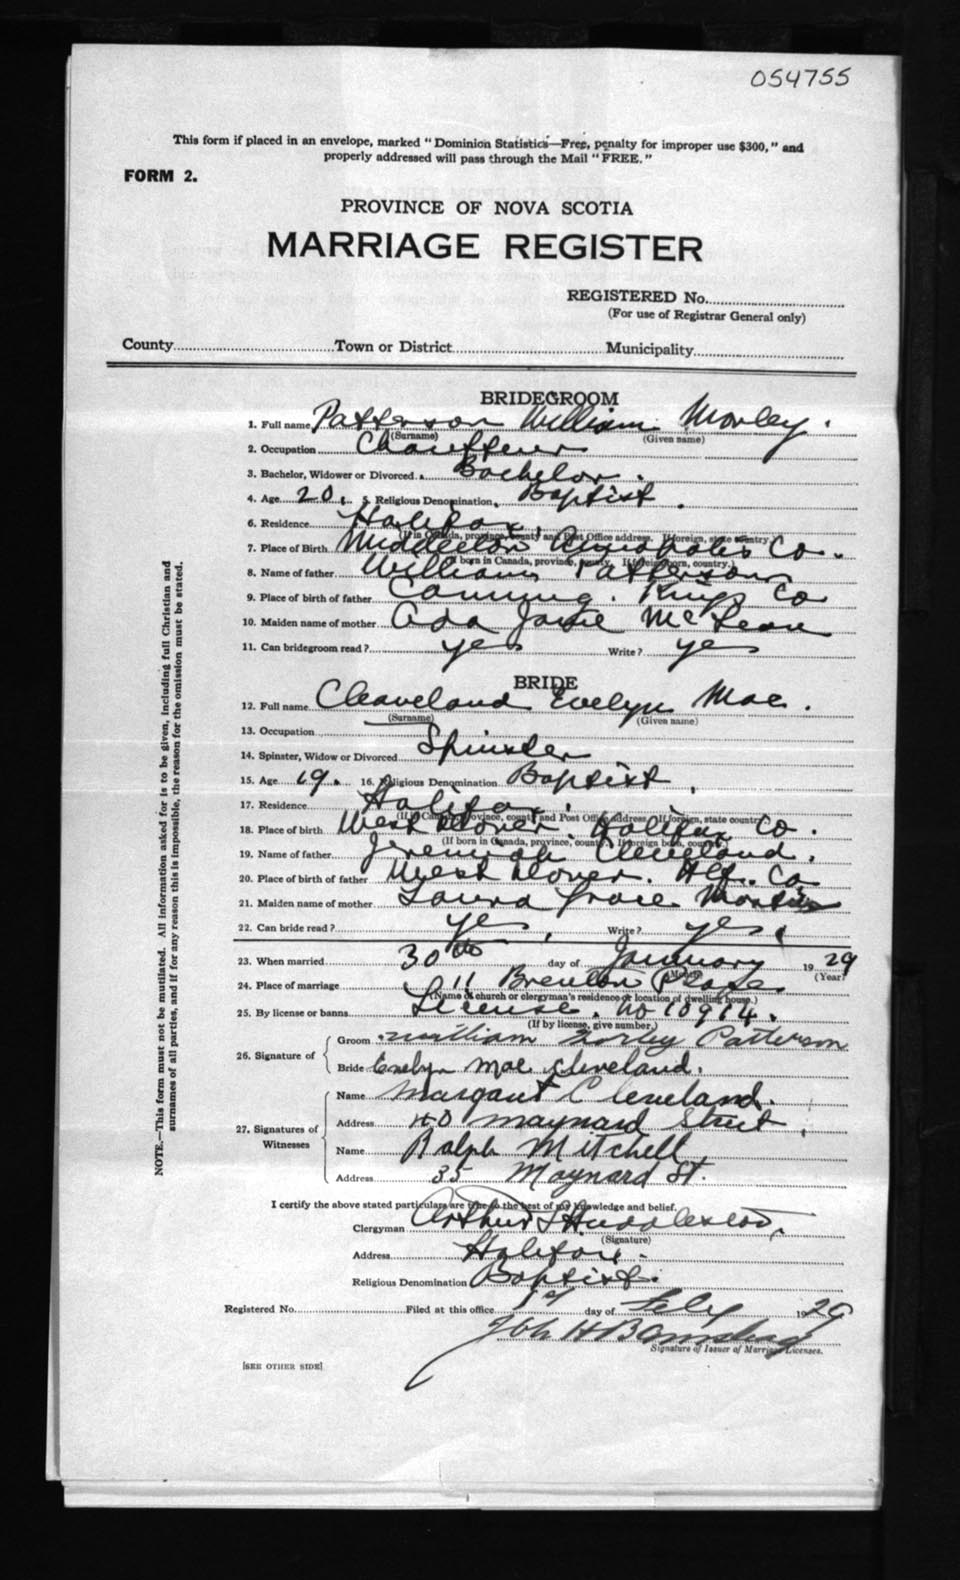 054755
This form if placed in an envelope, marked "Dominion Statistics—Free, penalty for improper use $300," and
properly addressed will pass through the Mail "FREE."
FORM 2.
PROVINCE OF NOVA SCOTIA
MARRIAGE REGISTER
REGISTERED No.
(For use of Registrar General only)
County Town or District Municipality
BRIDEGROOM
1. Full name Patterson William Morley.
(Surname) (Given name)
2. Occupation Chauffeur
3. Bachelor, Widower or Divorced. Bachelor.
4. Age 20. 5. Religious Denomination. Baptist.
6. Residence Halifax.
(If in Canada, province, county and Post Office address. If foreign, state country.)
7. Place of Birth Middleton Annapolis Co.
(If born in Canada, province, county. If foreign born, country.)
8. Name of father William Patterson
9. Place of birth of father Canning. Kings Co
10. Maiden name of mother Ada Jane McLean
11. Can bridegroom read? yes Write? yes
BRIDE
12. Full name Cleaveland Evelyn Mae.
(Surname) (Given name)
13. Occupation
14. Spinster, Widow or Divorced Spinster
15. Age 19. 16. Religious Denomination Baptist.
17. Residence Halifax.
(If in Canada, province, county and Post Office address. If foreign, state country.)
18. Place of birth West Dover. Halifax Co.
(If born in Canada, province, county. If foreign born, country.)
19. Name of father Jeremiah Cleveland.
20. Place of birth of father West Dover. Hfx. Co
21. Maiden name of mother Laura Grace
22. Can bride read? yes, Write? yes
23. When married 30th day of January 1929
(Month) (Year)
24. Place of marriage 11 Brenton Place
(Name of church or clergyman's residence or location of dwelling house.)
25. By license or banns License. No 10914.
(If by license, give number.)
26. Signature of
Groom William Morley Patterson
Bride Evelyn Mae Cleveland.
27. Signatures of Witnesses
Name Margaret Cleveland.
Address 40 Maynard Street,
Name Ralph Mitchell
Address 35 Maynard St.
I certify the above stated particulars are true to the best of my knowledge and belief.
Clergyman Arthur S Huddleston.
(Signature)
Address Halifax.
Religious Denomination Baptist.
Registered No. Filed at this office 1st day of Feby 1929
Signature of Issuer of Marriage Licenses.
[SEE OTHER SIDE]
NOTE.—This form must not be mutilated. All information asked for is to be given, including full Christian and
surnames of all parties, and if for any reason this is impossible, the reason for the omission must be stated.